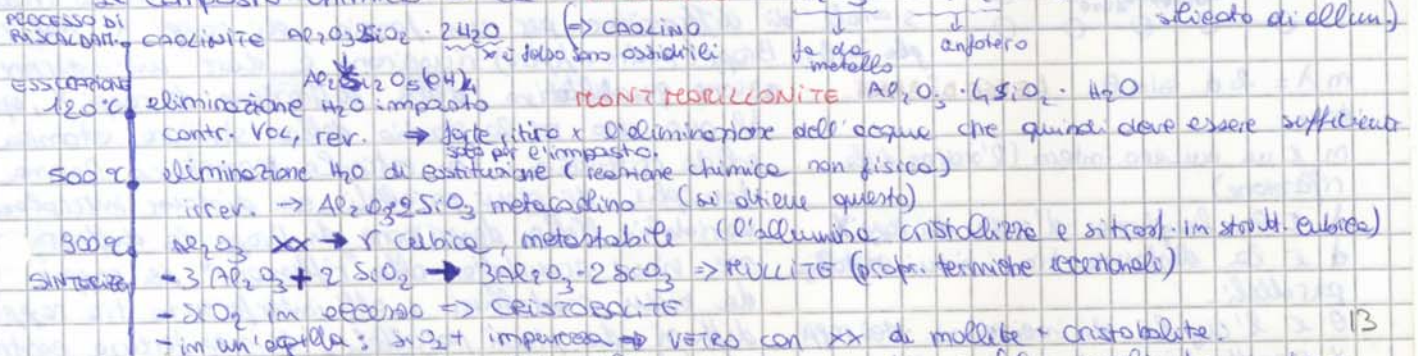 silicato di allum.)
PROCESSO DI
RISCALDAM. CAOLINITE Al2O3 2SiO2 · 2H2O (=> CAOLINO
x è falso sono ossidrili fa da metallo anfotero
ESSICCAZIONE Al2Si2O5(OH)4
120°C eliminazione H2O impasto MONTMORILLONITE Al2O3 · 4SiO2 · H2O
contr. VOL, rev. → forte ritiro x l'eliminazione dell'acqua che quindi deve essere sufficiente
solo per l'impasto.
500°C eliminazione H2O di costituzione (reazione chimica non fisica)
irrev. → Al2O3 2SiO3 metacaolino (si ottiene questo)
900°C Al2O3 xx → γ cubica, metastabile (l'allumina cristallizza e si trasf. in strutt. cubica)
SINTERIZZ - 3 Al2O3 + 2 SiO2 → 3Al2O3 · 2SiO3 => MULLITE (propr. termiche eccezionali)
- SiO2 in eccesso => CRISTOBALITE
- in un'argilla: SiO2 + impurezze => vetro con xx di mullite + cristobalite. 13